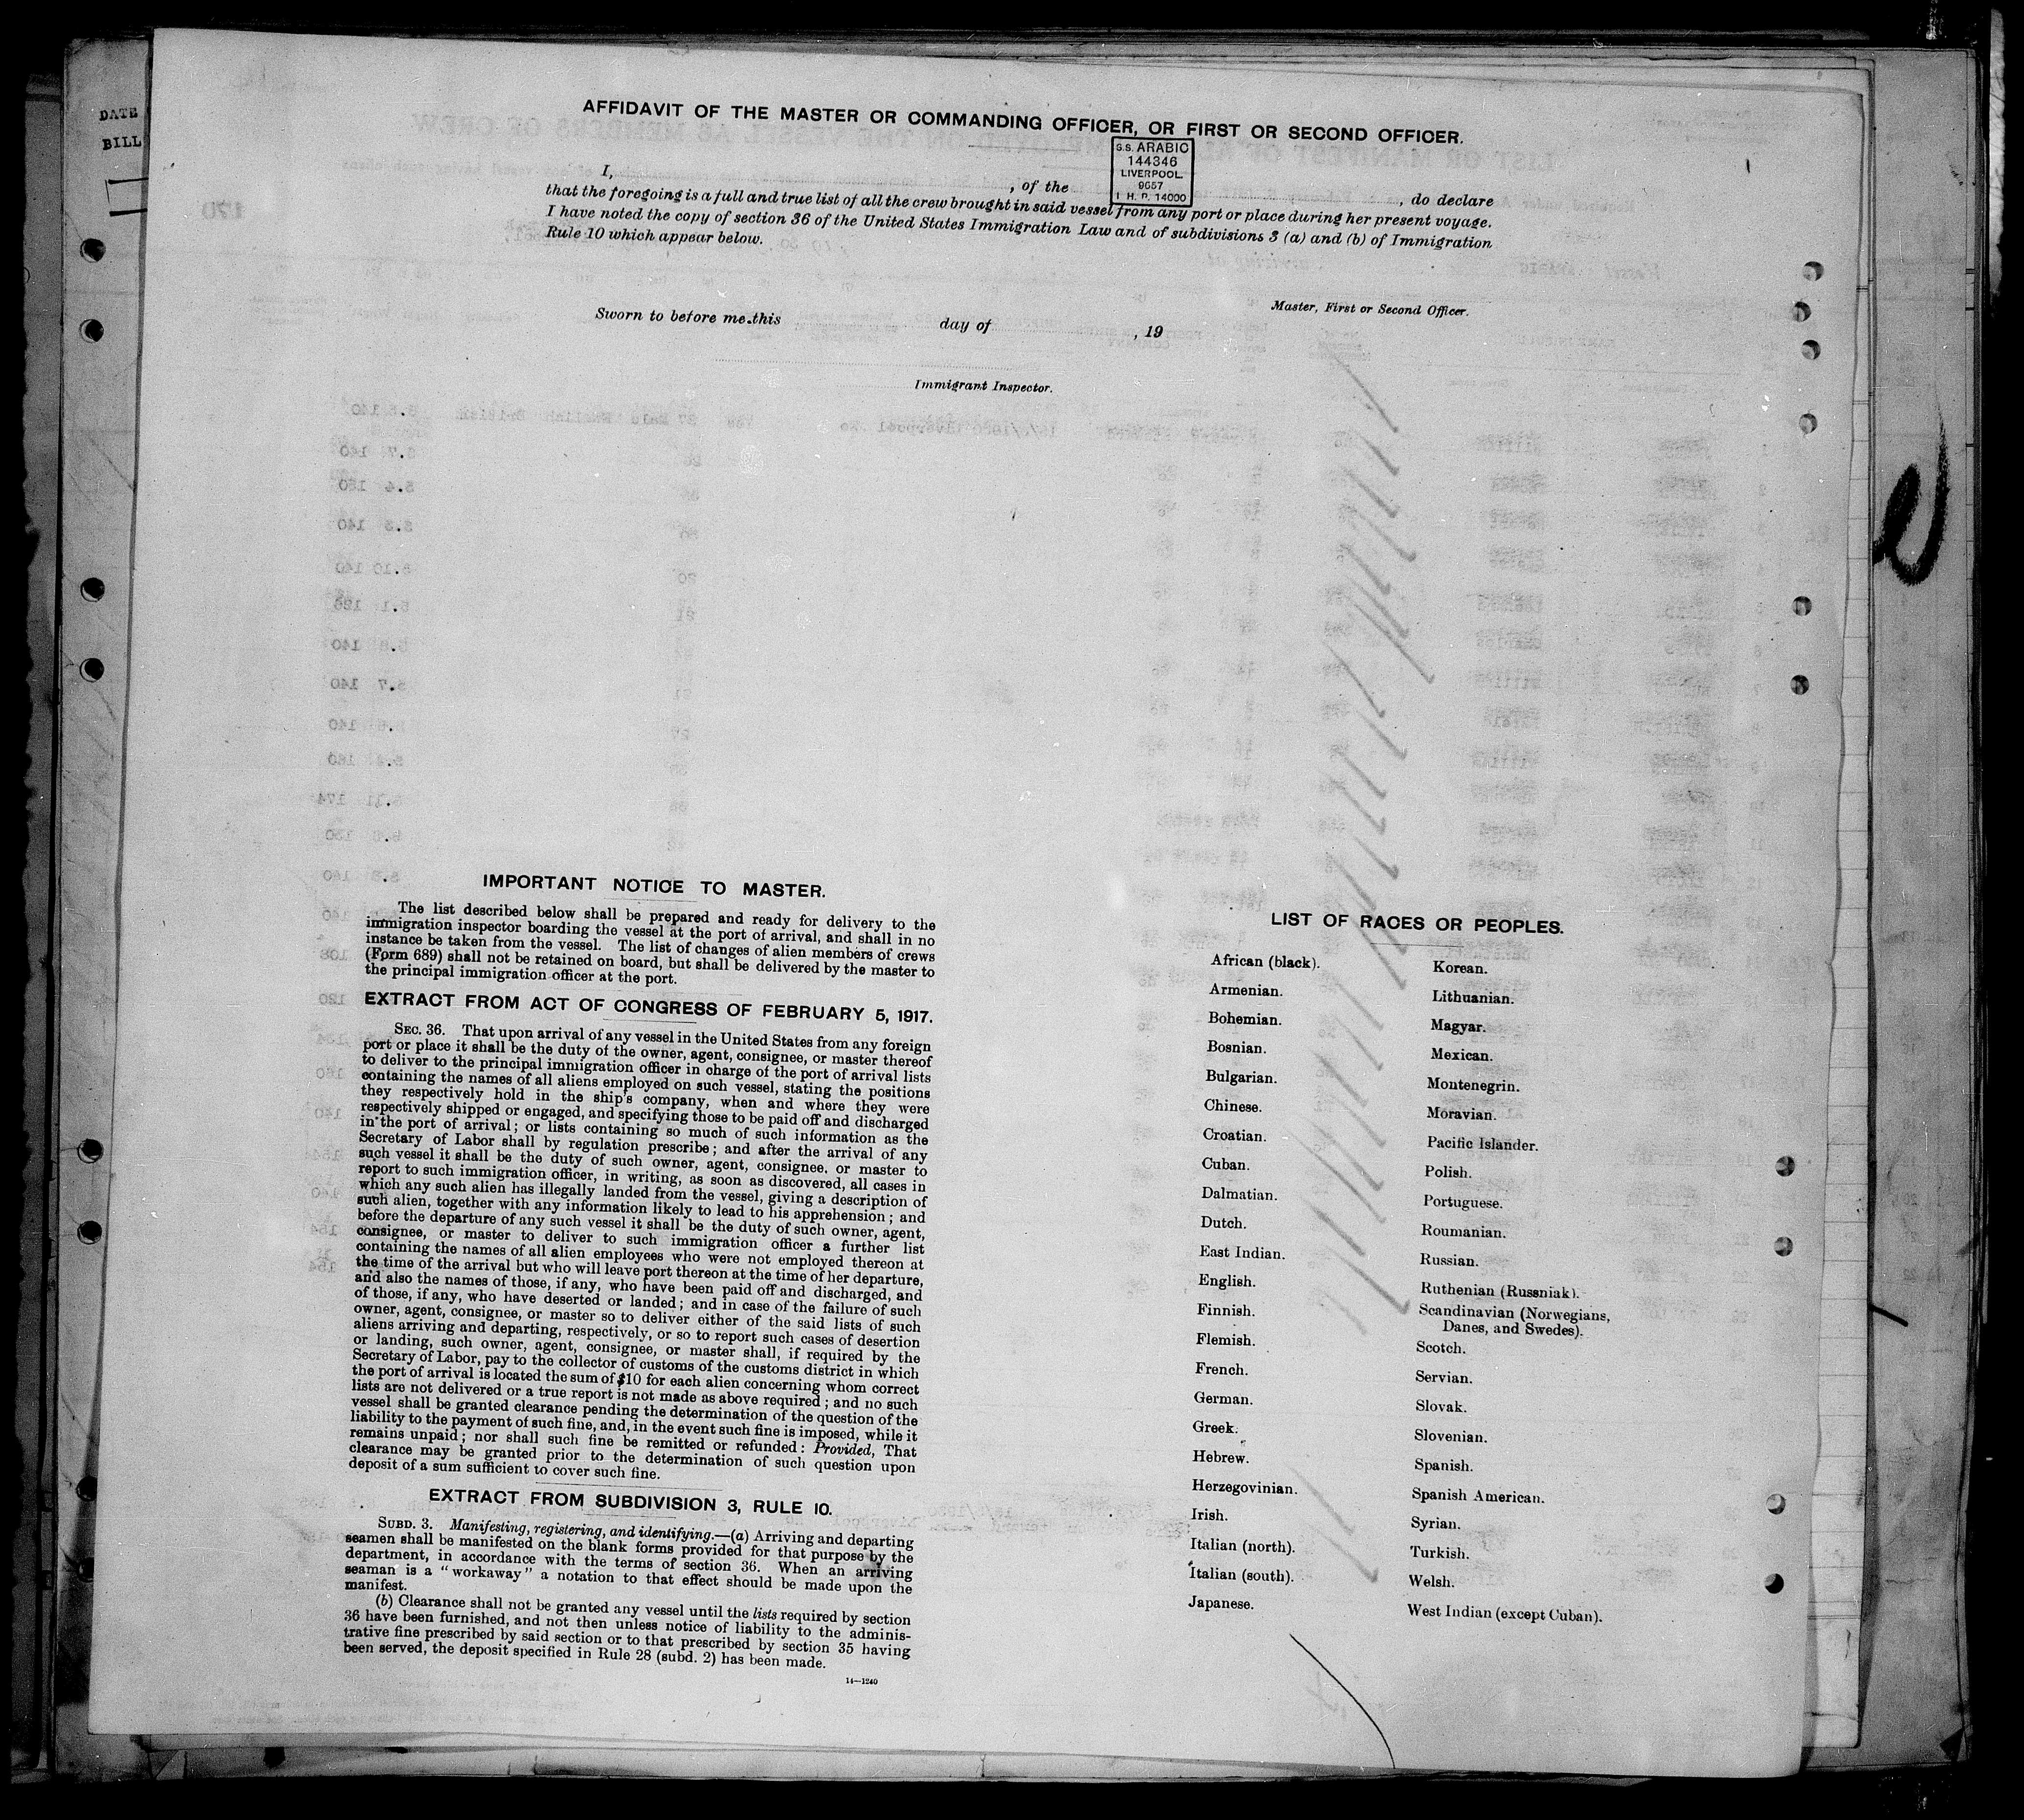 DATE
BILL
AFFIDAVIT OF THE MASTER OR COMMANDING OFFICER, OR FIRST OR SECOND OFFICER.
S.S. ARABIC
144346
LIVERPOOL.
9657
I. H. P. 14000
I, , of the , do declare
that the foregoing is a full and true list of all the crew brought in said vessel from any port or place during her present voyage.
I have noted the copy of section 36 of the United States Immigration Law and of subdivisions 3 (a) and (b) of Immigration
Rule 10 which appear below.
Master, First or Second Officer.
Sworn to before me this day of , 19
Immigrant Inspector.
IMPORTANT NOTICE TO MASTER.
The list described below shall be prepared and ready for delivery to the
immigration inspector boarding the vessel at the port of arrival, and shall in no
instance be taken from the vessel. The list of changes of alien members of crews
(Form 689) shall not be retained on board, but shall be delivered by the master to
the principal immigration officer at the port.
EXTRACT FROM ACT OF CONGRESS OF FEBRUARY 5, 1917.
SEC. 36. That upon arrival of any vessel in the United States from any foreign
port or place it shall be the duty of the owner, agent, consignee, or master thereof
to deliver to the principal immigration officer in charge of the port of arrival lists
containing the names of all aliens employed on such vessel, stating the positions
they respectively hold in the ship's company, when and where they were
respectively shipped or engaged, and specifying those to be paid off and discharged
in the port of arrival; or lists containing so much of such information as the
Secretary of Labor shall by regulation prescribe; and after the arrival of any
such vessel it shall be the duty of such owner, agent, consignee, or master to
report to such immigration officer, in writing, as soon as discovered, all cases in
which any such alien has illegally landed from the vessel, giving a description of
such alien, together with any information likely to lead to his apprehension; and
before the departure of any such vessel it shall be the duty of such owner, agent,
consignee, or master to deliver to such immigration officer a further list
containing the names of all alien employees who were not employed thereon at
the time of the arrival but who will leave port thereon at the time of her departure,
and also the names of those, if any, who have been paid off and discharged, and
of those, if any, who have deserted or landed; and in case of the failure of such
owner, agent, consignee, or master so to deliver either of the said lists of such
aliens arriving and departing, respectively, or so to report such cases of desertion
or landing, such owner, agent, consignee, or master shall, if required by the
Secretary of Labor, pay to the collector of customs of the customs district in which
the port of arrival is located the sum of $10 for each alien concerning whom correct
lists are not delivered or a true report is not made as above required; and no such
vessel shall be granted clearance pending the determination of the question of the
liability to the payment of such fine, and, in the event such fine is imposed, while it
remains unpaid; nor shall such fine be remitted or refunded: Provided, That
clearance may be granted prior to the determination of such question upon
deposit of a sum sufficient to cover such fine.
EXTRACT FROM SUBDIVISION 3, RULE 10.
SUBD. 3. Manifesting, registering, and identifying.—(a) Arriving and departing
seamen shall be manifested on the blank forms provided for that purpose by the
department, in accordance with the terms of section 36. When an arriving
seaman is a "workaway" a notation to that effect should be made upon the
manifest.
(b) Clearance shall not be granted any vessel until the lists required by section
36 have been furnished, and not then unless notice of liability to the adminis-
trative fine prescribed by said section or to that prescribed by section 35 having
been served, the deposit specified in Rule 28 (subd. 2) has been made.
14—1240
LIST OF RACES OR PEOPLES.
African (black).
Armenian.
Bohemian.
Bosnian.
Bulgarian.
Chinese.
Croatian.
Cuban.
Dalmatian.
Dutch.
East Indian.
English.
Finnish.
Flemish.
French.
German.
Greek.
Hebrew.
Herzegovinian.
Irish.
Italian (north).
Italian (south).
Japanese.
Korean.
Lithuanian.
Magyar.
Mexican.
Montenegrin.
Moravian.
Pacific Islander.
Polish.
Portuguese.
Roumanian.
Russian.
Ruthenian (Russniak).
Scandinavian (Norwegians,
Danes, and Swedes).
Scotch.
Servian.
Slovak.
Slovenian.
Spanish.
Spanish American.
Syrian.
Turkish.
Welsh.
West Indian (except Cuban).